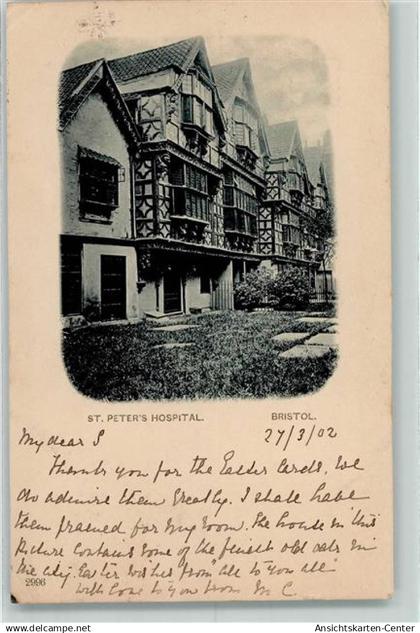 ST. PETER'S HOSPITAL.
BRISTOL.
27/3/02
My dear S
Thanks you for the Easter Cards. We
do admire them greatly. I shall have
them framed for my room. The house in this
Picture contains some of the finest old oak in
the city. Easter wishes from "all to you all"
with love to you from M. C
2996
Ansichtskarten-Center.com